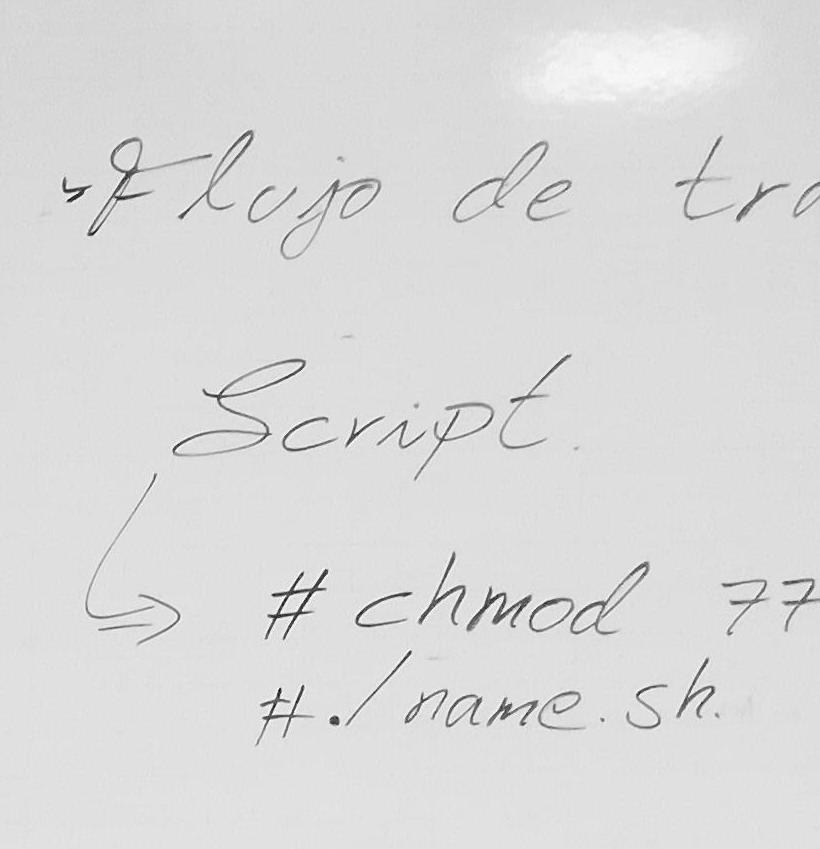 Flujo de
Script.
# chmod
#./name.sh.